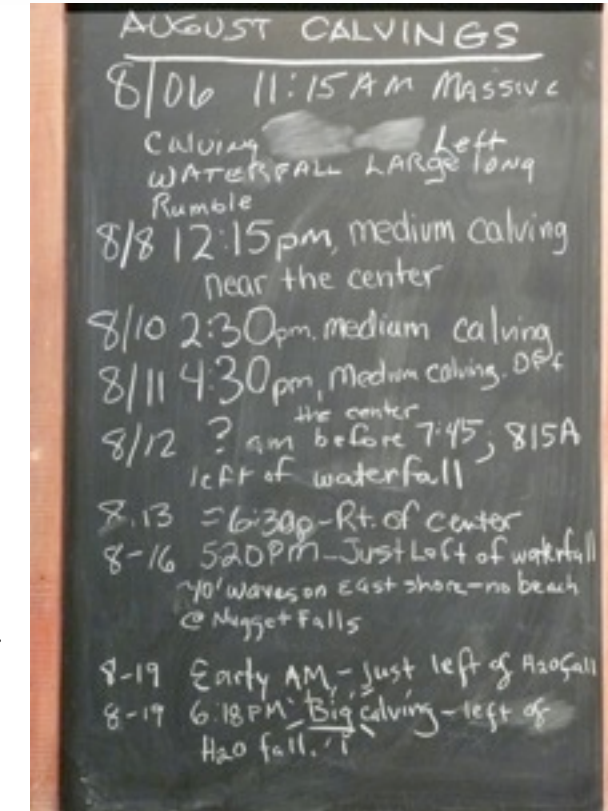 AUGUST CALVINGS
8/06 11:15 AM MASSIVE
Calving Left
WATERFALL LARGE long
Rumble
8/8 12:15pm, medium calving
near the center
8/10 2:30pm. medium calving
8/11 4:30pm, Medium Calving.
the center
8/12 ? am before 7:45, 815A
left of waterfall
8.13 =6:30p-Rt. of center
8-16 520PM-Just Left of waterfall
~10' waves on East shore-no beach
@ Nugget Falls
8-19 Early AM,-just left of H20fall
8-19 6:18PM Big calving-left of
H20 fall.